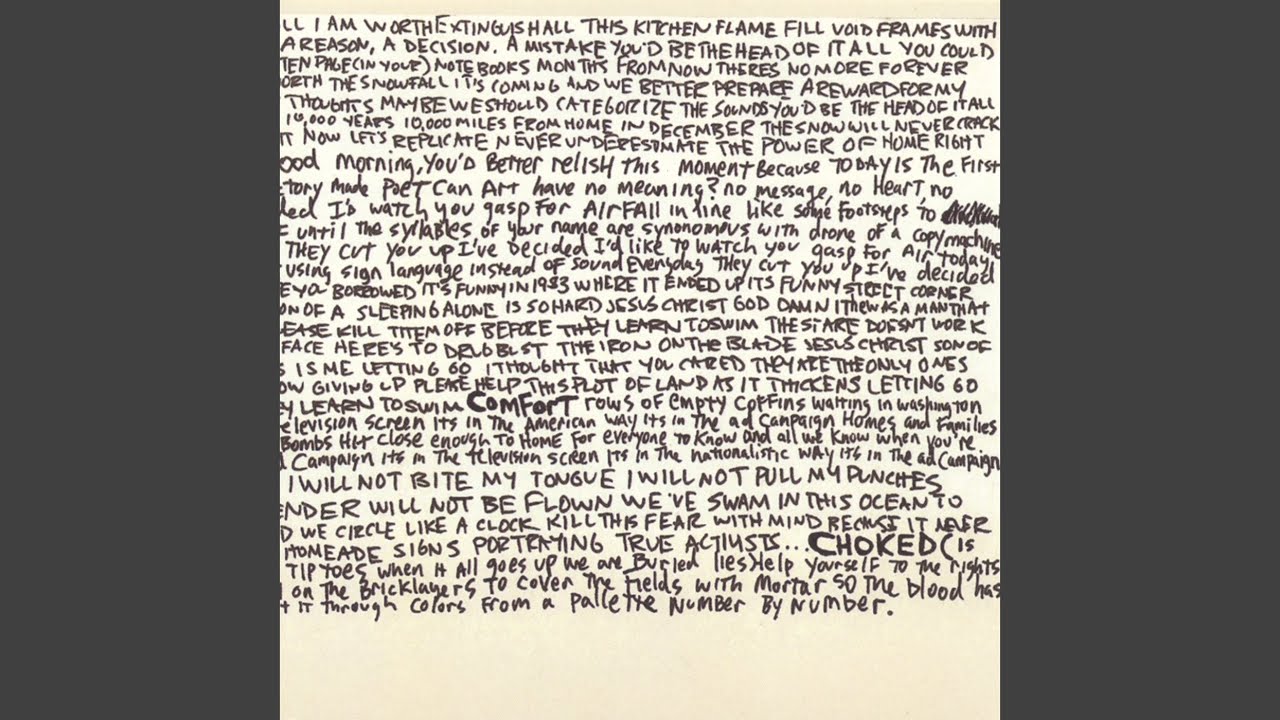 LL I AM WORTH EXTINGUISH ALL THIS KITCHEN FLAME FILL VOID FRAMES WITH
A REASON, A DECISION. A MISTAKE YOU'D BE THE HEAD OF IT ALL YOU COULD
TEN PAGE (IN YOUR) NOTEBOOKS MONTHS FROM NOW THERES NO MORE FOREVER
ORTH THE SNOWFALL IT'S COMING AND WE BETTER PREPARE A REWARD FOR MY
THOUGHTS MAYBE WE SHOULD CATEGORIZE THE SOUNDS YOU'D BE THE HEAD OF IT ALL
10,000 YEARS 10,000 MILES FROM HOME IN DECEMBER THE SNOW WILL NEVER CRACK
IT NOW LET'S REPLICATE NEVER UNDERESTIMATE THE POWER OF HOME RIGHT
ood Morning, You'd Better relish this moment Because TODAY IS The First
etory Made Poet Can Art have no meaning? no message, no Heart, no
ded I'd watch you gasp For Air Fall in line like some Footsteps to
F until The syllables of your name are synonomous with drone of a copy machine
THEY CUT YOU UP I've decided I'd like to watch you gasp for Air today
using sign language instead of sound Everyday They cut you up I've decided
E YOU BORROWED IT'S FUNNY IN 1983 WHERE IT ENDED UP ITS FUNNY STREET CORNER
ON OF A SLEEPING ALONE IS SO HARD JESUS CHRIST GOD DAMN IT HEW AS A MAN THAT
LEASE KILL THEM OFF BEFORE THEY LEARN TO SWIM THE STARE DOESNT WORK
FACE HERE'S TO DRUG BUST THE IRON ON THE BLADE JESUS CHRIST SON OF
S IS ME LETTING GO I THOUGHT THAT YOU CARED THEY ARE THE ONLY ONES
OW GIVING UP PLEASE HELP THIS PLOT OF LAND AS IT THICKENS LETTING GO
EY LEARN TO SWIM COMFORT rows of empty coffins waiting in washington
elevision screen its in The American way its in The ad Campaign Homes and Families
Bombs Hit close enough to Home for everyone to Know and all we know when you're
d Campaign its in The television screen its in The nationalistic way its in The ad Campaign
I WILL NOT BITE MY TONGUE I WILL NOT PULL MY PUNCHES
ENDER WILL NOT BE FLOWN WE'VE SWAM IN THIS OCEAN TO
D WE CIRCLE LIKE A CLOCK KILL THIS FEAR WITH MIND BECAUSE IT NEVER
HOMEADE SIGNS PORTRAYING TRUE ACTIVISTS... CHOKED (IS
TIPTOES when it All goes up we are Buried lies Help Yourself To the rights
on The Bricklayers to cover The Fields with Mortar so The blood has
t it through colors From a Pallette Number By Number.